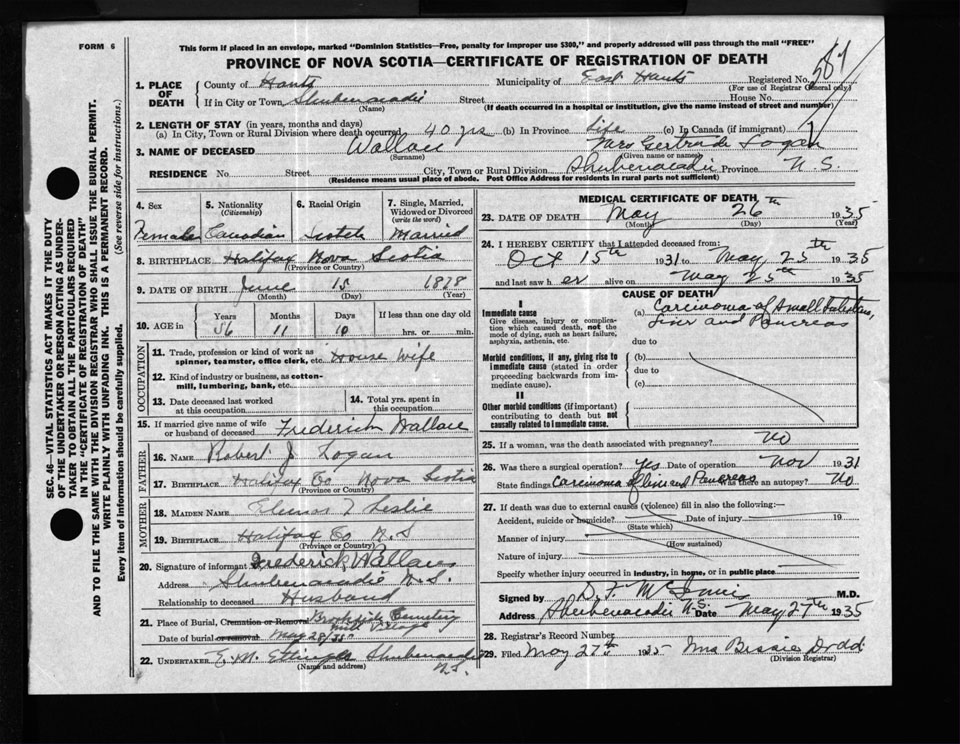 FORM 6
This form if placed in an envelope, marked "Dominion Statistics—Free, penalty for improper use $300," and properly addressed will pass through the mail "FREE"
PROVINCE OF NOVA SCOTIA—CERTIFICATE OF REGISTRATION OF DEATH
1. PLACE OF DEATH
County of Hants Municipality of East Hants Registered No. 587
(For use of Registrar General only)
If in City or Town Shubenacadie Street House No.
(Name) (If death occurred in a hospital or institution, give the name instead of street and number)
2. LENGTH OF STAY (in years, months and days)
(a) In City, Town or Rural Division where death occurred 40 yrs (b) In Province Life (c) In Canada (if immigrant)
3. NAME OF DECEASED Wallace Gertrude Logan
(Surname) (Given name or names)
RESIDENCE No. Street City, Town or Rural Division Shubenacadie Province N.S.
(Residence means usual place of abode. Post Office Address for residents in rural parts not sufficient)
4. Sex Female
5. Nationality (Citizenship) Canadian
6. Racial Origin Scotch
7. Single, Married, Widowed or Divorced (write the word) Married
8. BIRTHPLACE Halifax Nova Scotia
(Province or Country)
9. DATE OF BIRTH June 15 1878
(Month) (Day) (Year)
10. AGE in Years Months Days If less than one day old
56 11 10 hrs. or min.
OCCUPATION
11. Trade, profession or kind of work as spinner, teamster, office clerk, etc. House Wife
12. Kind of industry or business, as cotton-mill, lumbering, bank, etc.
13. Date deceased last worked at this occupation
14. Total yrs. spent in this occupation
15. If married give name of wife or husband of deceased Frederick Wallace
FATHER
16. NAME Robert J. Logan
17. BIRTHPLACE Halifax Co Nova Scotia
(Province or Country)
MOTHER
18. MAIDEN NAME Leslie
19. BIRTHPLACE Halifax Co N.S
(Province or Country)
20. Signature of informant Frederick Wallace
Address Shubenacadie N.S.
Relationship to deceased Husband
21. Place of Burial, Cremation or Removal Cemetery
Village
Date of burial or removal May 28/35
22. UNDERTAKER E.M. Ettinger Shubenacadie
(Name and address) N.S.
MEDICAL CERTIFICATE OF DEATH
23. DATE OF DEATH May 26th 1935
(Month) (Day) (Year)
24. I HEREBY CERTIFY that I attended deceased from:
Oct 15th 1931 to May 25th 1935
and last saw her alive on May 25th 1935
CAUSE OF DEATH
I
Immediate cause
Give disease, injury or complication which caused death, not the mode of dying, such as heart failure, asphyxia, asthenia, etc.
(a) Carcinoma of Small Intestine,
Liver and Pancreas
due to
Morbid conditions, if any, giving rise to immediate cause (stated in order proceeding backwards from immediate cause).
(b)
due to
(c)
II
Other morbid conditions (if important) contributing to death but not causally related to immediate cause.
25. If a woman, was the death associated with pregnancy? No
26. Was there a surgical operation? Yes Date of operation Nov 1931
State findings Carcinoma of liver and Pancreas Was there an autopsy? No
27. If death was due to external causes (violence) fill in also the following:—
Accident, suicide or homicide? Date of injury 19
(State which)
Manner of injury
(How sustained)
Nature of injury
Specify whether injury occurred in industry, in home, or in public place
Signed by D. F. McInnis M.D.
Address Shubenacadie N.S. Date May 27th 1935
28. Registrar's Record Number
29. Filed May 27th 1935 Mrs Bessie Dodd
(Division Registrar)
SEC. 46—VITAL STATISTICS ACT MAKES IT THE DUTY
OF THE UNDERTAKER OR PERSON ACTING AS UNDER-
TAKER TO OBTAIN ALL THE PARTICULARS REQUIRED
IN THE "CERTIFICATE OF REGISTRATION OF DEATH"
AND TO FILE THE SAME WITH THE DIVISION REGISTRAR WHO SHALL ISSUE THE BURIAL PERMIT.
WRITE PLAINLY WITH UNFADING INK. THIS IS A PERMANENT RECORD.
Every item of information should be carefully supplied. (See reverse side for instructions.)